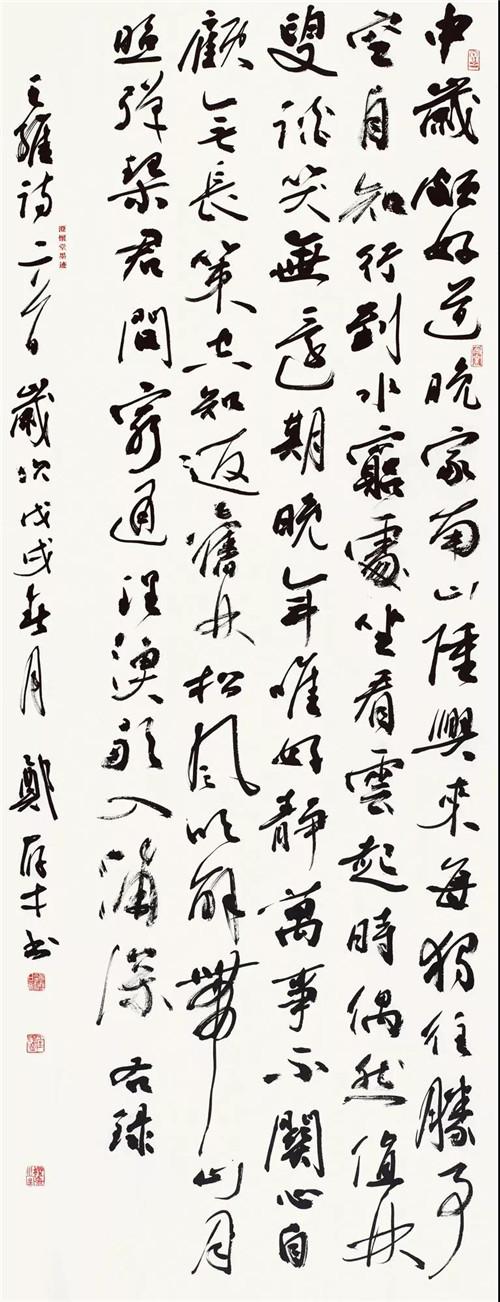 中歲頗好道晚家南山陲興來每獨往勝事
空自知行到水窮處坐看雲起時偶然值林
叟談笑無還期晚年唯好靜萬事不關心自
顧無長策空知返舊林松風吹解帶山月
照彈琴君問窮通理漁歌入浦深 右録
王維詩二首 歲次戊戌春月 鄭才書
澄懷堂墨迹